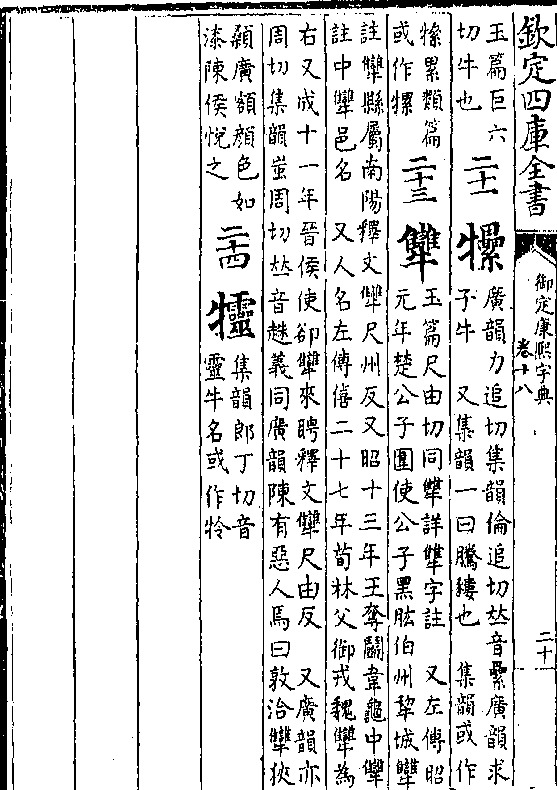 欽定四庫全書
御定康熙字典
卷十八
二十
玉篇巨六
切牛也
二十一
㹎
廣韻力追切集韻倫追切𠀤音纍廣韻求
子牛 又集韻一曰騰𤛿也 集韻或作
㹎累類篇
或作㹎
二十三
犫
玉篇尺由切同犨詳犨字註 又左傳昭
元年楚公子圍使公子黑肱伯州犂城犫
註犫縣屬南陽釋文犫尺州反又昭十三年王奪鬭韋龜中犫
註中犫邑名 又人名左傳僖二十七年荀林父御戎魏犫為
右又成十一年晉侯使郤犫來聘釋文犫尺由反 又廣韻亦
周切集韻蚩周切𠀤音䞭義同廣韻陳有惡人焉曰敦洽犫狹
顙廣額顏色如
漆陳侯悅之
二十四
㸳
集韻郎丁切音
靈牛名或作㸳